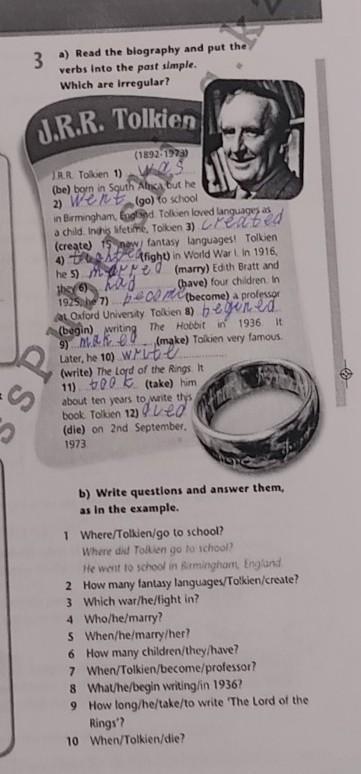 3 a) Read the biography and put the
verbs into the past simple.
Which are irregular?
J.R.R. Tolkien
(1892-1973)
J.R.R. Tolkien 1) was
(be) born in South Africa but he
2) went (go) to school
in Birmingham, England. Tolkien loved languages as
a child. In his lifetime, Tolkien 3) created
(create) 15 new fantasy languages! Tolkien
4) (fight) in World War I. In 1916,
he 5) marred (marry) Edith Bratt and
they 6) had (have) four children. In
1925, he 7) become (become) a professor
at Oxford University. Tolkien 8) begined
(begin) writing The Hobbit in 1936. It
9) maked (make) Tolkien very famous.
Later, he 10) write
(write) The Lord of the Rings. It
11) took (take) him
about ten years to write this
book. Tolkien 12)
(die) on 2nd September,
1973.
b) Write questions and answer them,
as in the example.
1 Where/Tolkien/go to school?
Where did Tolkien go to school?
He went to school in Birmingham, England.
2 How many fantasy languages/Tolkien/create?
3 Which war/he/fight in?
4 Who/he/marry?
5 When/he/marry/her?
6 How many children/they/have?
7 When/Tolkien/become/professor?
8 What/he/begin writing/in 1936?
9 How long/he/take/to write 'The Lord of the
Rings'?
10 When/Tolkien/die?